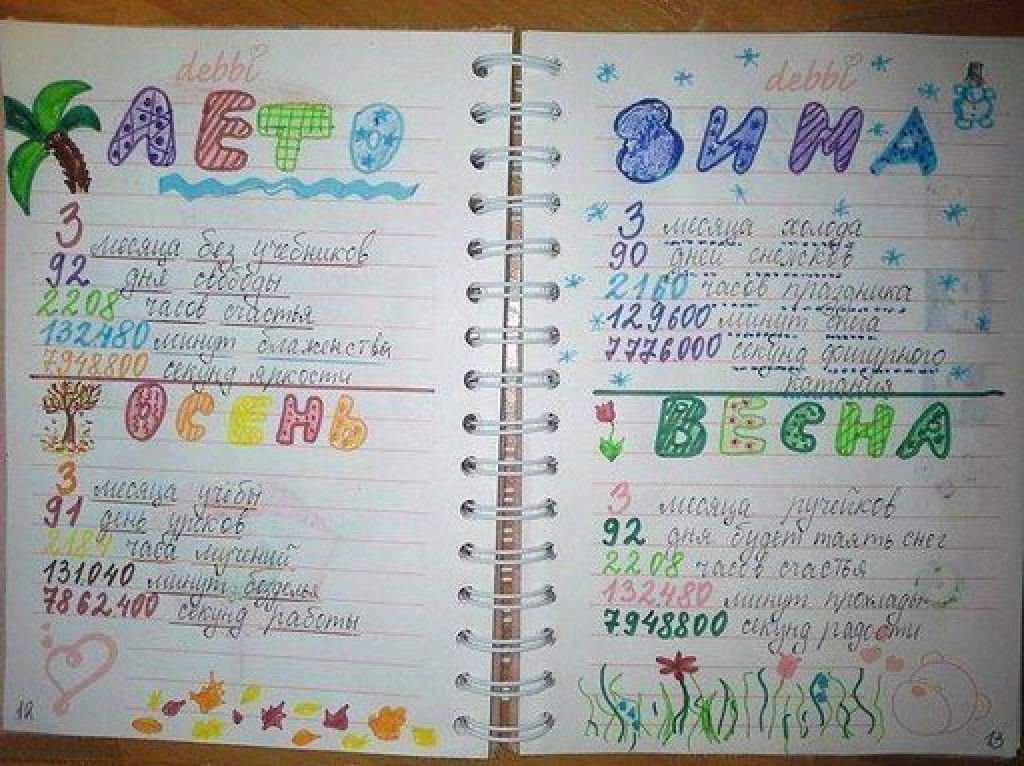 debbi
ЛЕТО
3
месяца без учебников
92 дня свободы
2208 часов счастья
132480 минут блаженства
7948800 секунд яркости
ОСЕНЬ
3 месяца учёбы
91 день уроков
2184 часа мучений
131040 минут безделья
7862400 секунд работы
12
debbi
ЗИМА
3 месяца холода
90 дней снежков
2160 часов праздника
129600 минут снега
7776000 секунд
катания
ВЕСНА
3 месяца ручейков
92 дня будет таять снег
2208 часов счастья
132480 минут прохлады
7948800 секунд радости
13